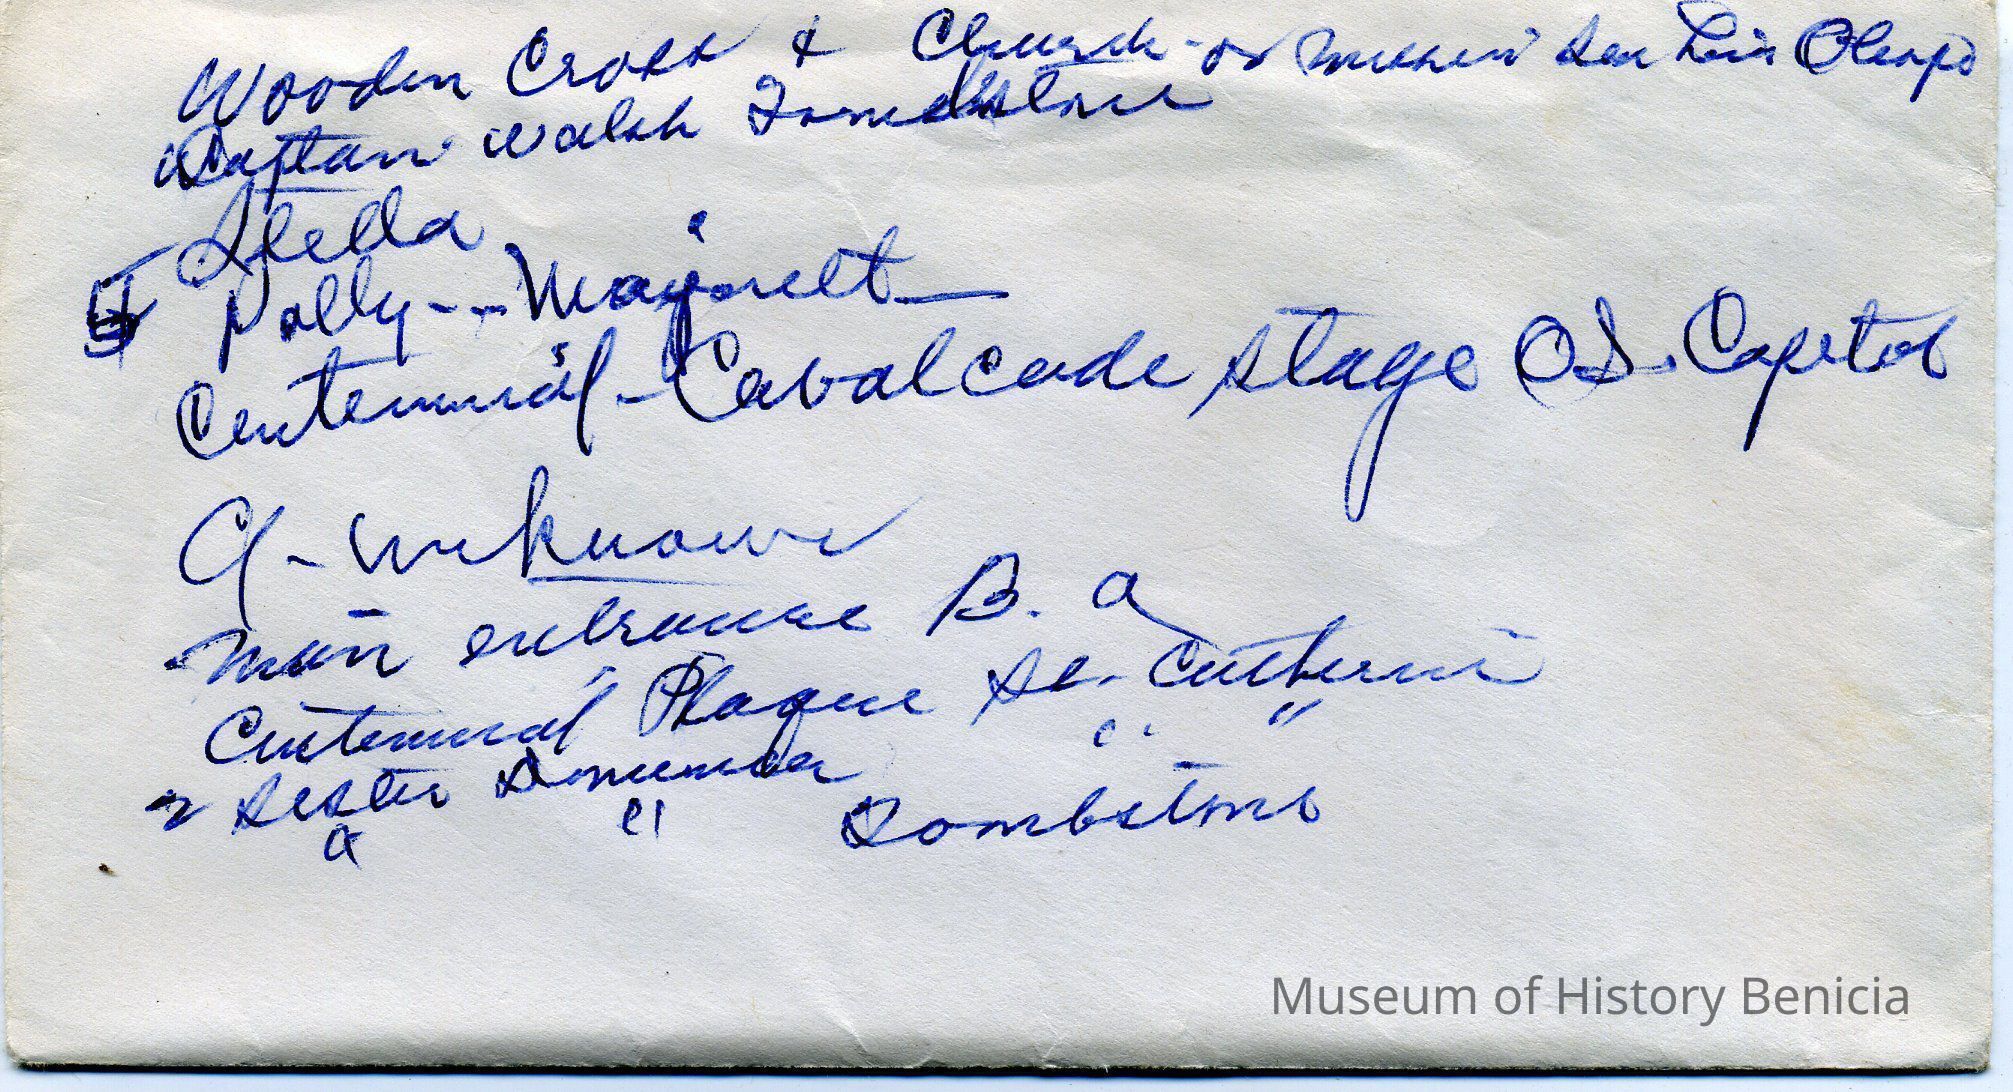 Wooden Cross & Church - or Mission San Luis Obispo
Captan Walsh Tombstone
Stella
Polly -- Majorett
Centennial - Cavalcade stage Of Capitol
a - unknown
Main entrance B. a
Centennial Plaque St. Catherin
2 Sister " "
a " Tombstone
Museum of History Benicia